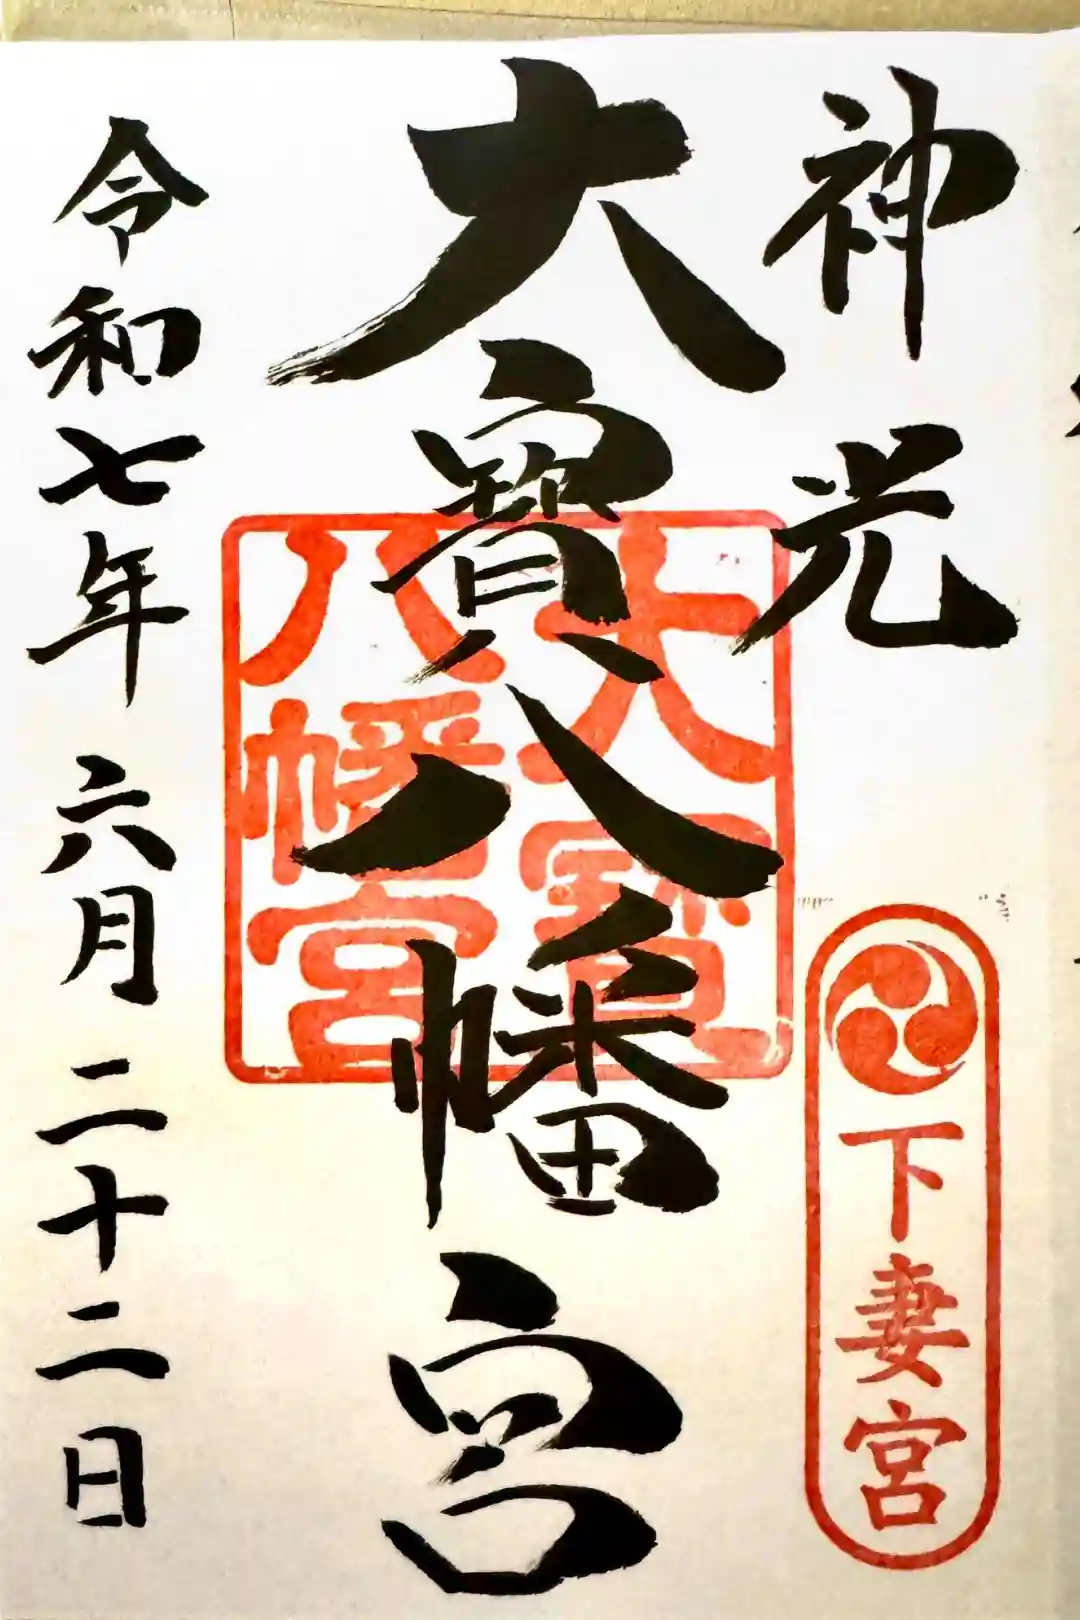 神光
下妻宮
大寶八幡宮
大寶
八幡宮
令和七年六月二十二日